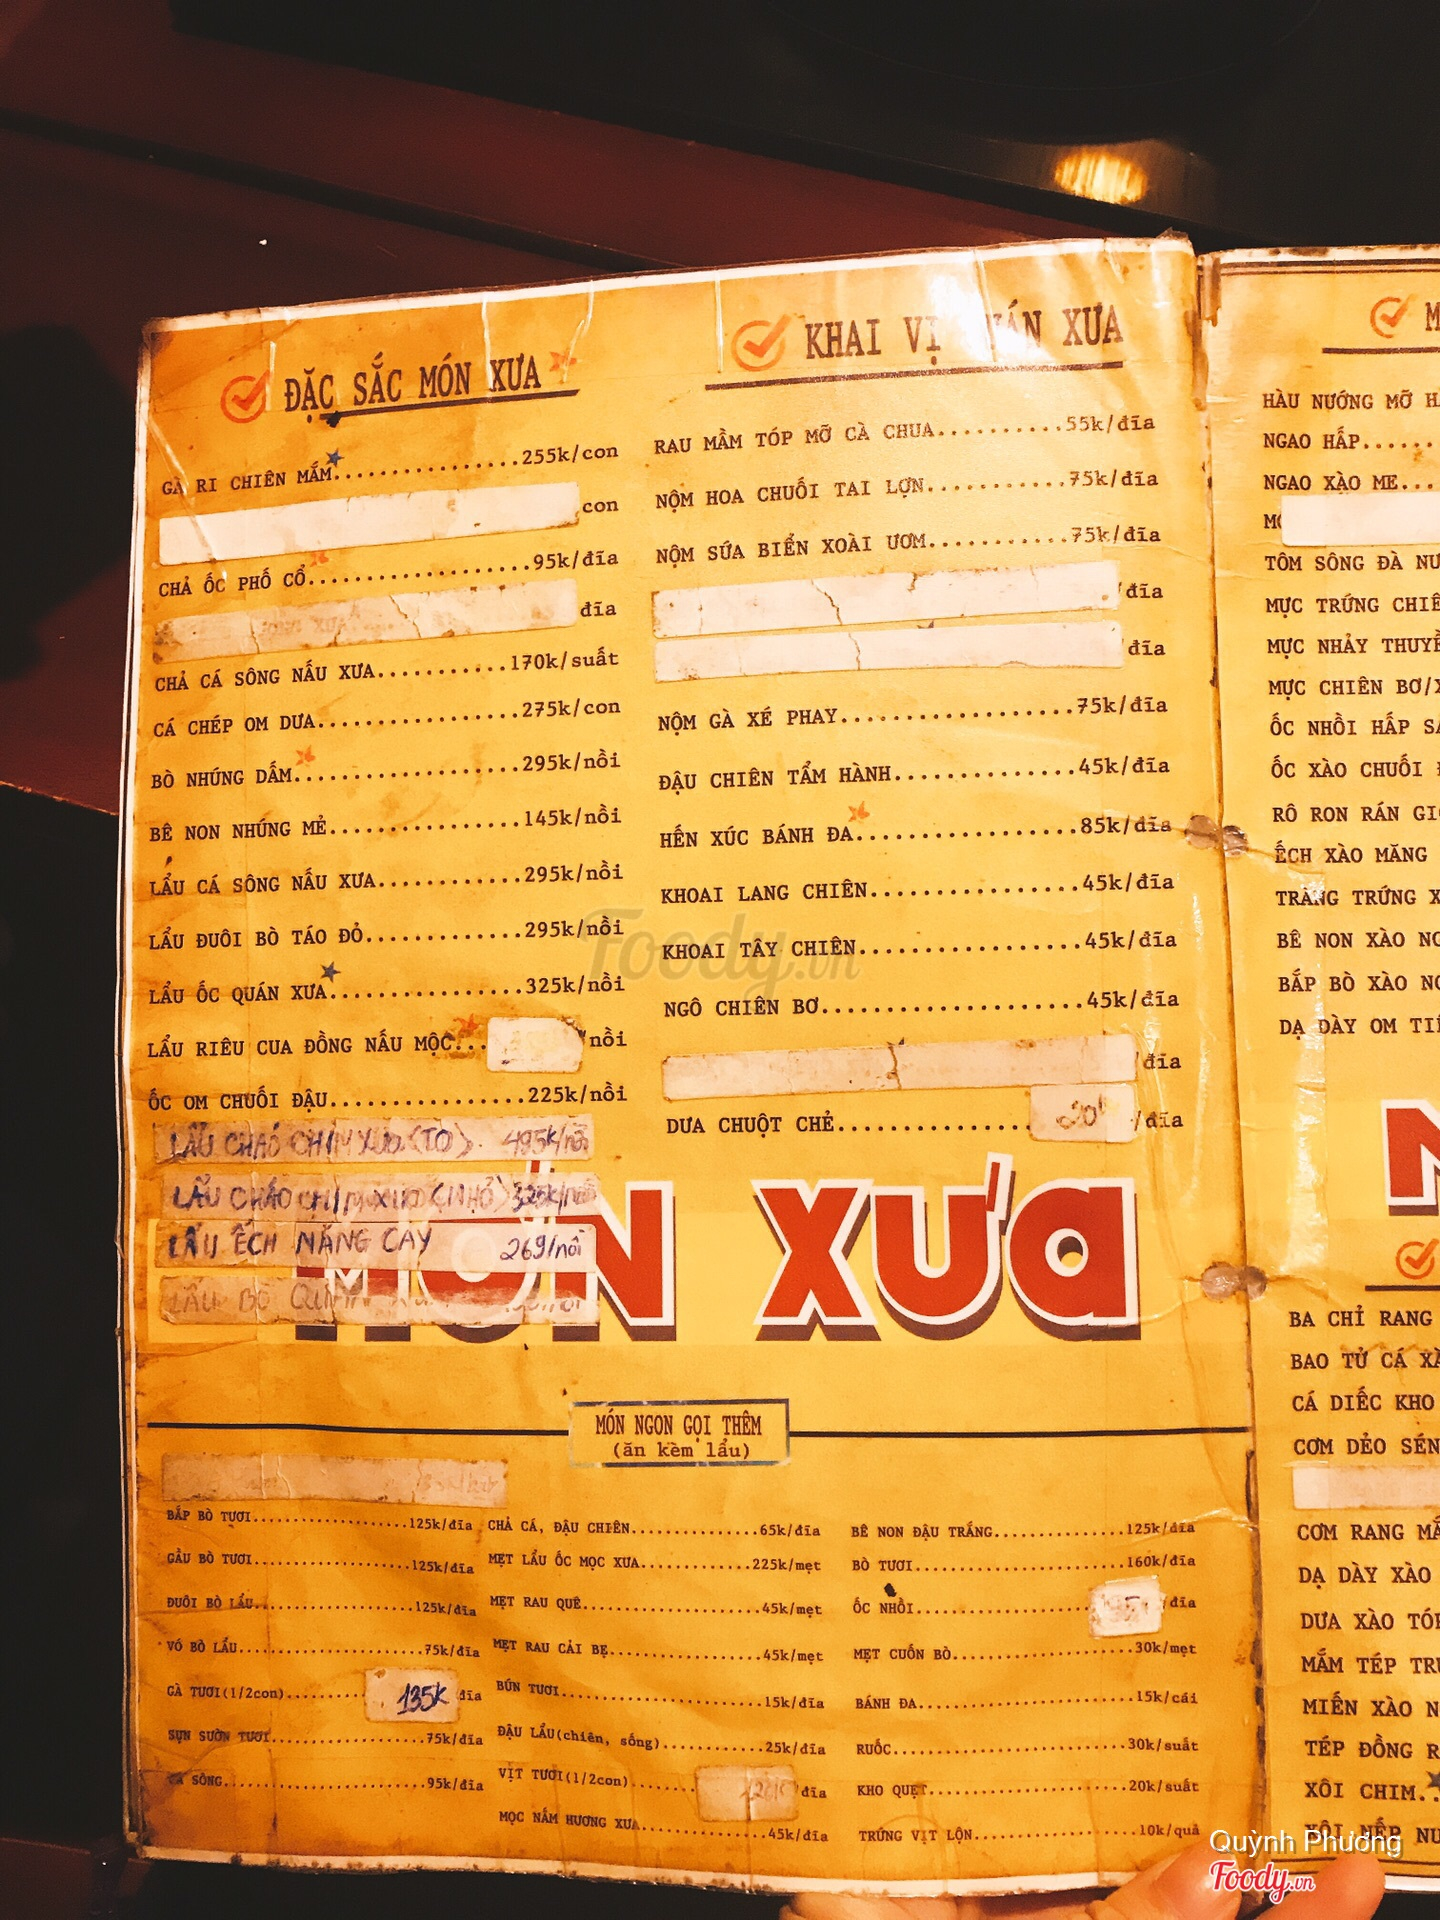 ĐẶC SẮC MÓN XƯA
GÀ RI CHIÊN MẮM................255k/con
con
CHẢ ỐC PHỐ CỔ....................95k/đĩa
đĩa
CHẢ CÁ SÔNG NẤU XƯA...........170k/suất
CÁ CHÉP OM DƯA................275k/con
BÒ NHÚNG DẤM..................295k/nồi
BÊ NON NHÚNG MẺ...............145k/nồi
LẨU CÁ SÔNG NẤU XƯA...........295k/nồi
LẨU ĐUÔI BÒ TÁO ĐỎ............295k/nồi
LẨU ỐC QUÁN XƯA...............325k/nồi
LẨU RIÊU CUA ĐỒNG NẤU MỘC... nồi
ỐC OM CHUỐI ĐẬU...............225k/nồi
LẨU CHÁO CHIM XƯA (TO). 495k/nồi
LẨU CHÁO CHIM XƯA (NHỎ) 325k/nồi
LẨU ẾCH MĂNG CAY 269/nồi
LẨU BÒ QUÁN
KHAI VỊ QUÁN XƯA
RAU MẦM TÓP MỠ CÀ CHUA..........55k/đĩa
NỘM HOA CHUỐI TAI LỢN...........75k/đĩa
NỘM SỨA BIỂN XOÀI ƯƠM...........75k/đĩa
/đĩa
đĩa
NỘM GÀ XÉ PHAY..................75k/đĩa
ĐẬU CHIÊN TẨM HÀNH..............45k/đĩa
HẾN XÚC BÁNH ĐA.................85k/đĩa
KHOAI LANG CHIÊN................45k/đĩa
KHOAI TÂY CHIÊN.................45k/đĩa
NGÔ CHIÊN BƠ....................45k/đĩa
đĩa
DƯA CHUỘT CHẺ............... /đĩa
MÓN XƯA
MÓN NGON GỌI THÊM
(ăn kèm lẩu)
BẮP BÒ TƯƠI....................125k/đĩa
GẦU BÒ TƯƠI....................125k/đĩa
ĐUÔI BÒ LẨU....................125k/đĩa
VÓ BÒ LẨU.......................75k/đĩa
GÀ TƯƠI(1/2con).......... 135k đĩa
SỤN SƯỜN TƯƠI...................75k/đĩa
CÁ SÔNG.........................95k/đĩa
CHẢ CÁ, ĐẬU CHIÊN................65k/đĩa
MẸT LẨU ỐC MỌC XƯA..............225k/mẹt
MẸT RAU QUÊ......................45k/mẹt
MẸT RAU CẢI BẸ...................45k/mẹt
BÚN TƯƠI.........................15k/đĩa
ĐẬU LẨU(chiên, sống).............25k/đĩa
VỊT TƯƠI(1/2con)........ đĩa
MỌC NẤM HƯƠNG XƯA................45k/đĩa
BÊ NON ĐẬU TRẮNG................125k/đĩa
BÒ TƯƠI.........................160k/đĩa
ỐC NHỒI................... đĩa
MẸT CUỐN BÒ......................30k/mẹt
BÁNH ĐA..........................15k/cái
RUỐC.............................30k/suất
KHO QUẸT.........................20k/suất
TRỨNG VỊT LỘN....................10k/quả
HÀU NƯỚNG MỠ
NGAO HẤP......
NGAO XÀO ME...
TÔM SÔNG ĐÀ
MỰC TRỨNG
MỰC NHẢY
MỰC CHIÊN BƠ/
ỐC NHỒI HẤP
ỐC XÀO CHUỐI
RÔ RON RÁN
ẾCH XÀO MĂNG
TRÀNG TRỨNG
BÊ NON XÀO
BẮP BÒ XÀO
DẠ DÀY OM
BA CHỈ RANG
BAO TỬ CÁ
CÁ DIẾC KHO
CƠM DẺO
CƠM RANG
DẠ DÀY XÀO
DƯA XÀO
MẮM TÉP
MIẾN XÀO
TÉP ĐỒNG
XÔI CHIM..
XÔI NẾP
Foody.vn
Quỳnh Phương
Foody.vn